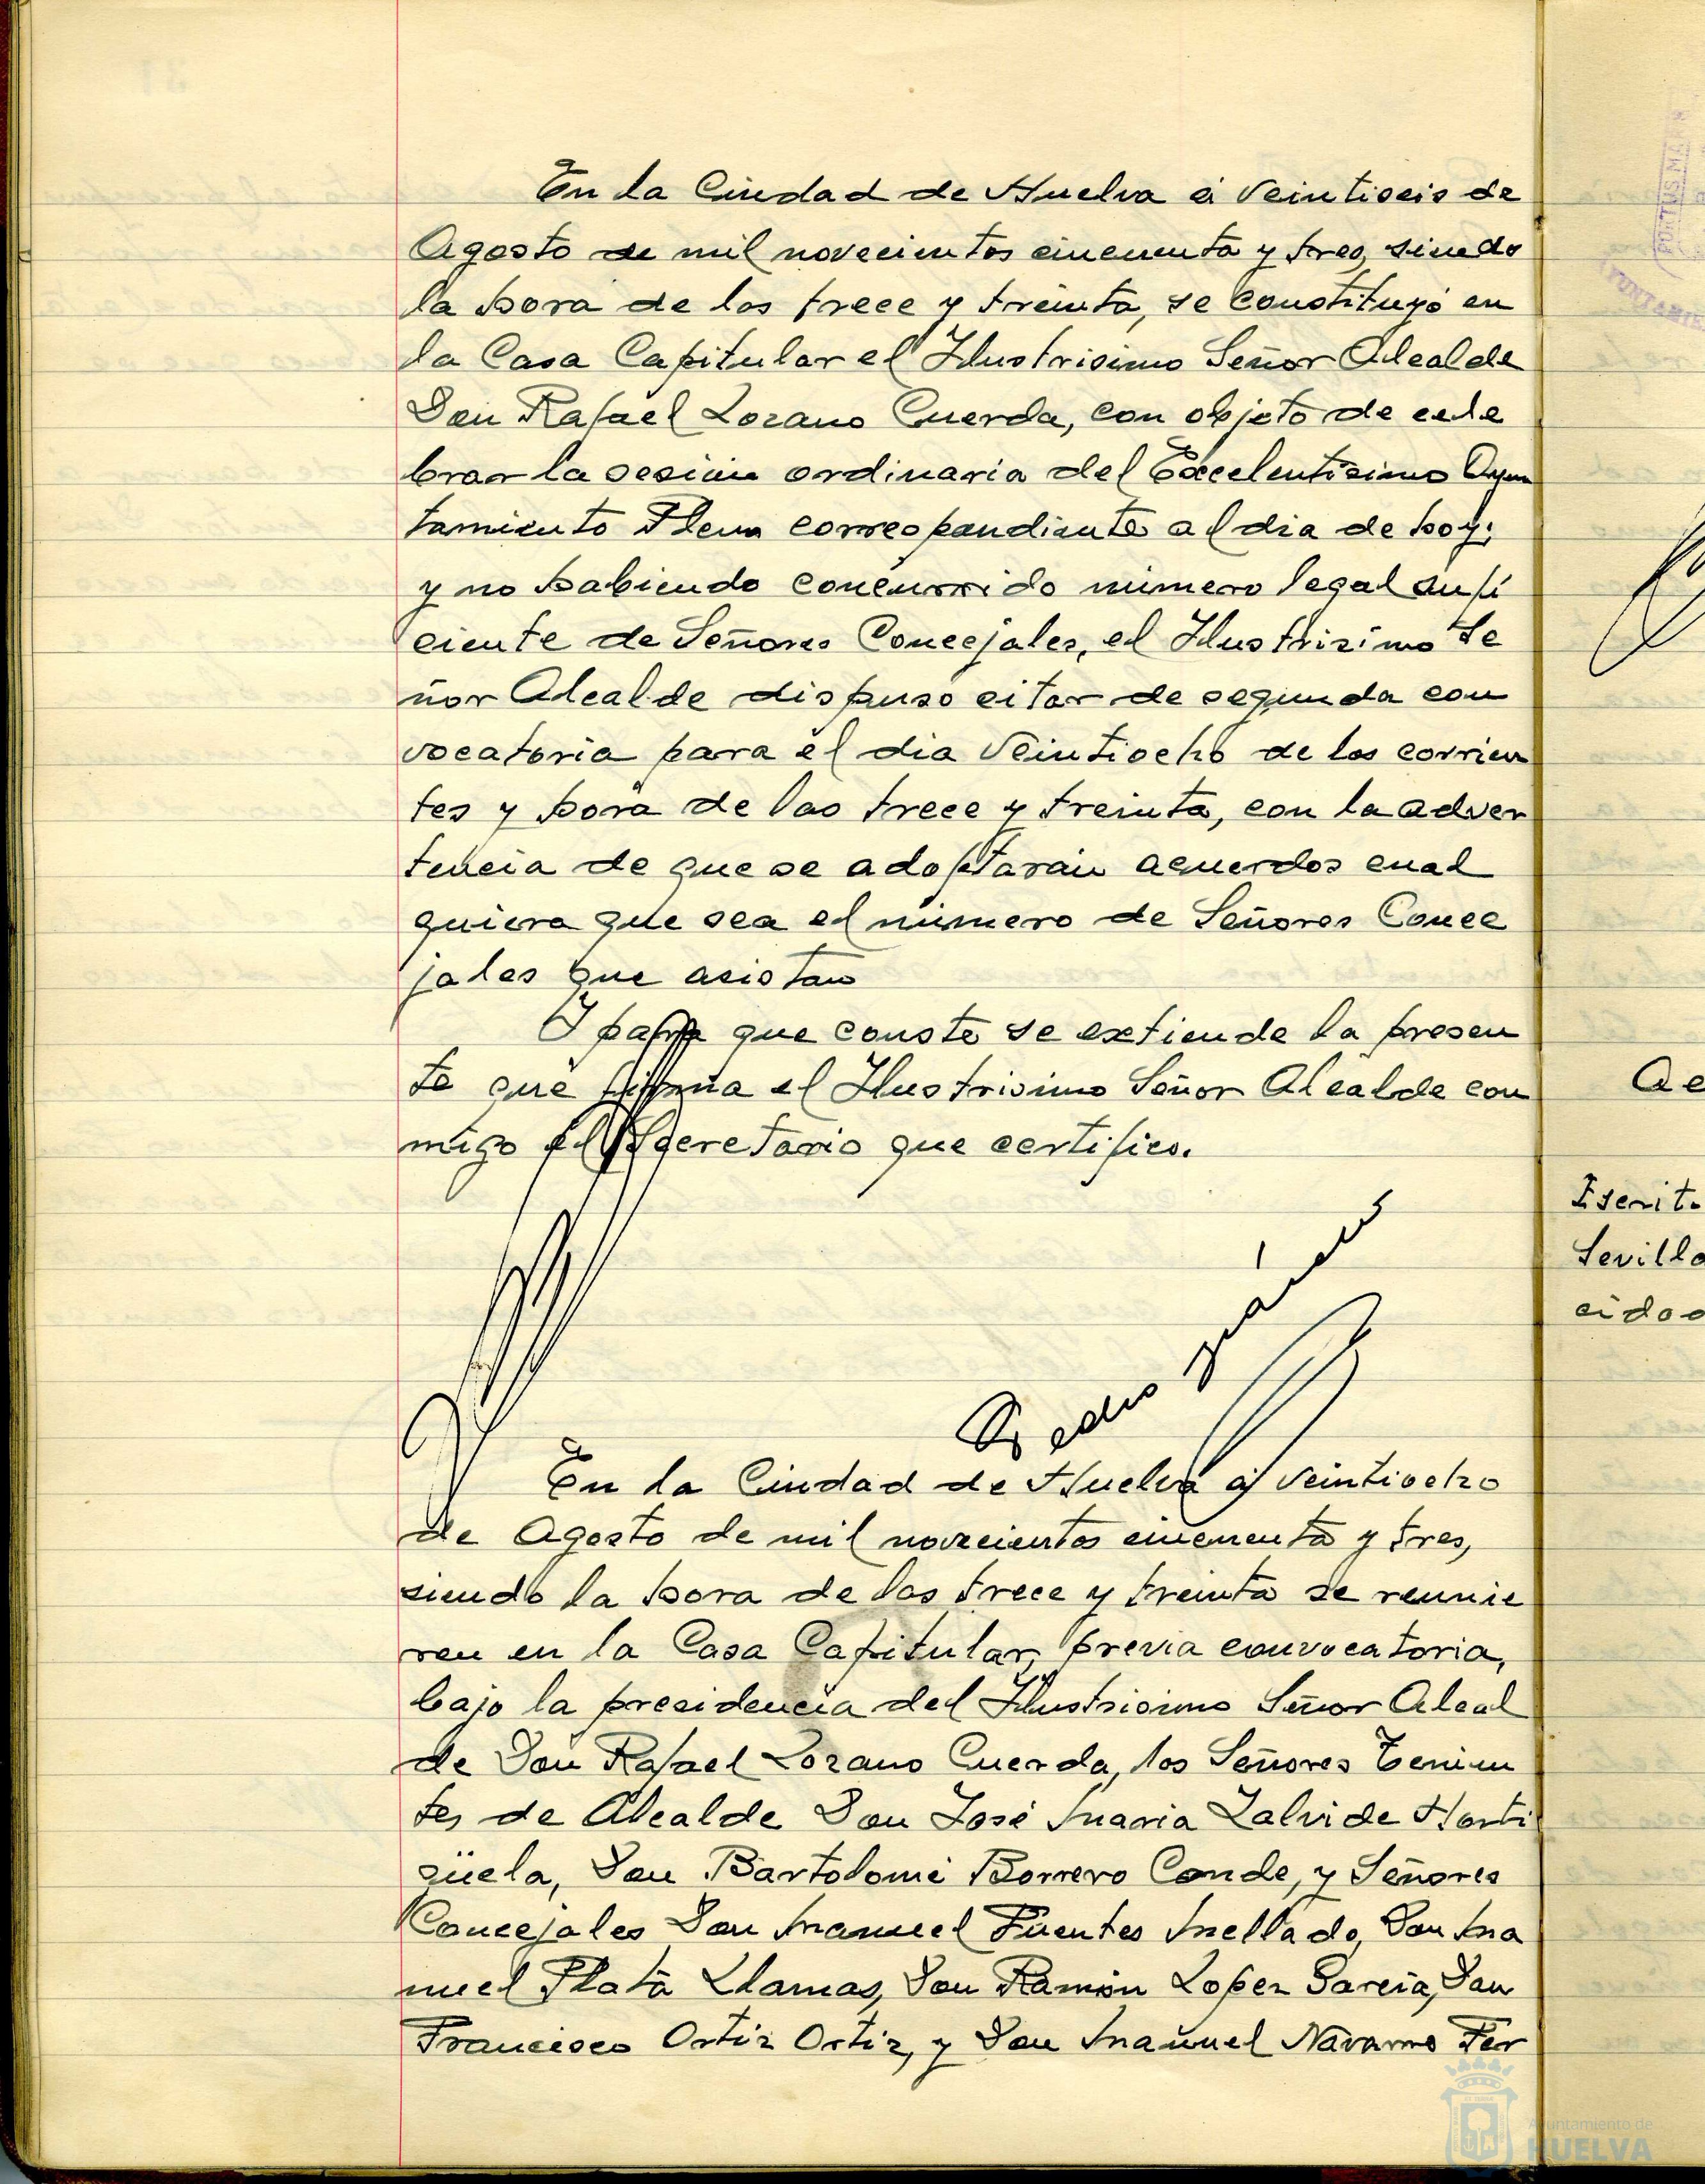 En la Ciudad de Huelva á veintiseis de
Agosto de mil novecientos cincuenta y tres, siendo
la hora de las trece y treinta, se constituyó en
la Casa Capitular el Ilustrisimo Señor Alcalde
Don Rafael Lozano Cuerda, con objeto de cele
brar la sesión ordinaria del Excelentisimo Ayun
tamiento Pleno correspondiente al dia de hoy;
y no habiendo concurrido número legal sufi
ciente de Señores Concejales, el Ilustrisimo Se
ñor Alcalde dispuso citar de segunda con
vocatoria para el dia veintiocho de los corrien
tes y hora de las trece y treinta, con la adver
tencia de que se adoptarán acuerdos cual
quiera que sea el número de Señores Conce
jales que asistan
Y para que conste se extiende la presen
te que firma el Ilustrisimo Señor Alcalde con
migo el Secretario que certifico.
Pedro
En la Ciudad de Huelva á veintiocho
de Agosto de mil novecientos cincuenta y tres,
siendo la hora de las trece y treinta se reunie
ron en la Casa Capitular, previa convocatoria,
bajo la presidencia del Ilustrisimo Señor Alcal
de Don Rafael Lozano Cuerda, los Señores Tenien
tes de Alcalde Don José Maria Zalvide Horti
güela, Don Bartolomé Borrero Conde, y Señores
Concejales Don Manuel Fuentes Mellado, Don Ma
nuel Plata Llamas, Don Ramón Lopez Garcia, Don
Francisco Ortiz Ortiz, y Don Manuel Navarro Fer
Ac
Escrit.
Sevilla
cidos
Ayuntamiento de
HUELVA